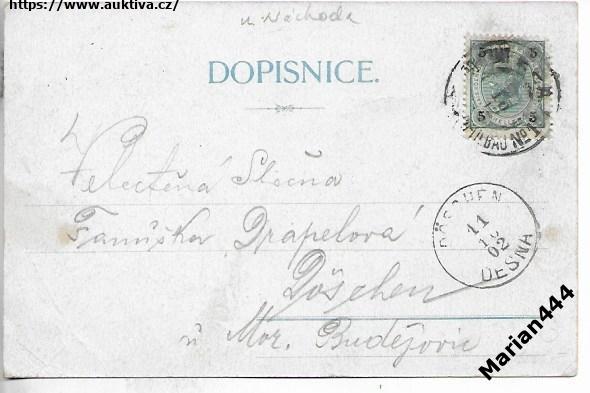 https://www.auktiva.cz/
u Náchoda
DOPISNICE.
5 5
5 5
Velectěná Slečna
Fanuška Drápelová
Döschen
u Mor. Budějovic
DÖSCHEN
11
10
02
DESNA
Marian444